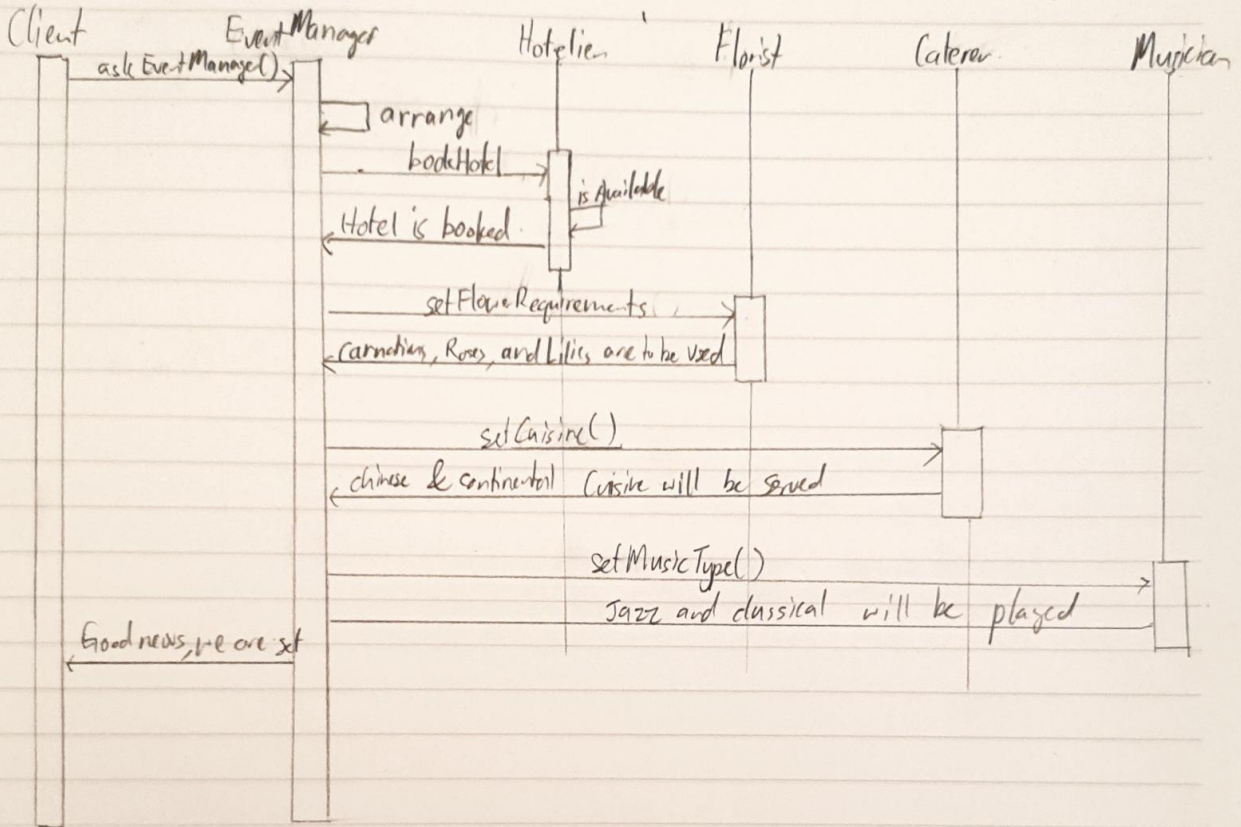 Client EventManager Hotelier Florist Caterer Musician
askEventManage()
arrange
bookHotel
isAvailable
Hotel is booked.
setFloweRequirements
Carnations, Roses, and Lilies are to be used
setCuisine()
chinese & continentall Cuisine will be served
setMusicType()
Jazz and classical will be played
Good news, we are set